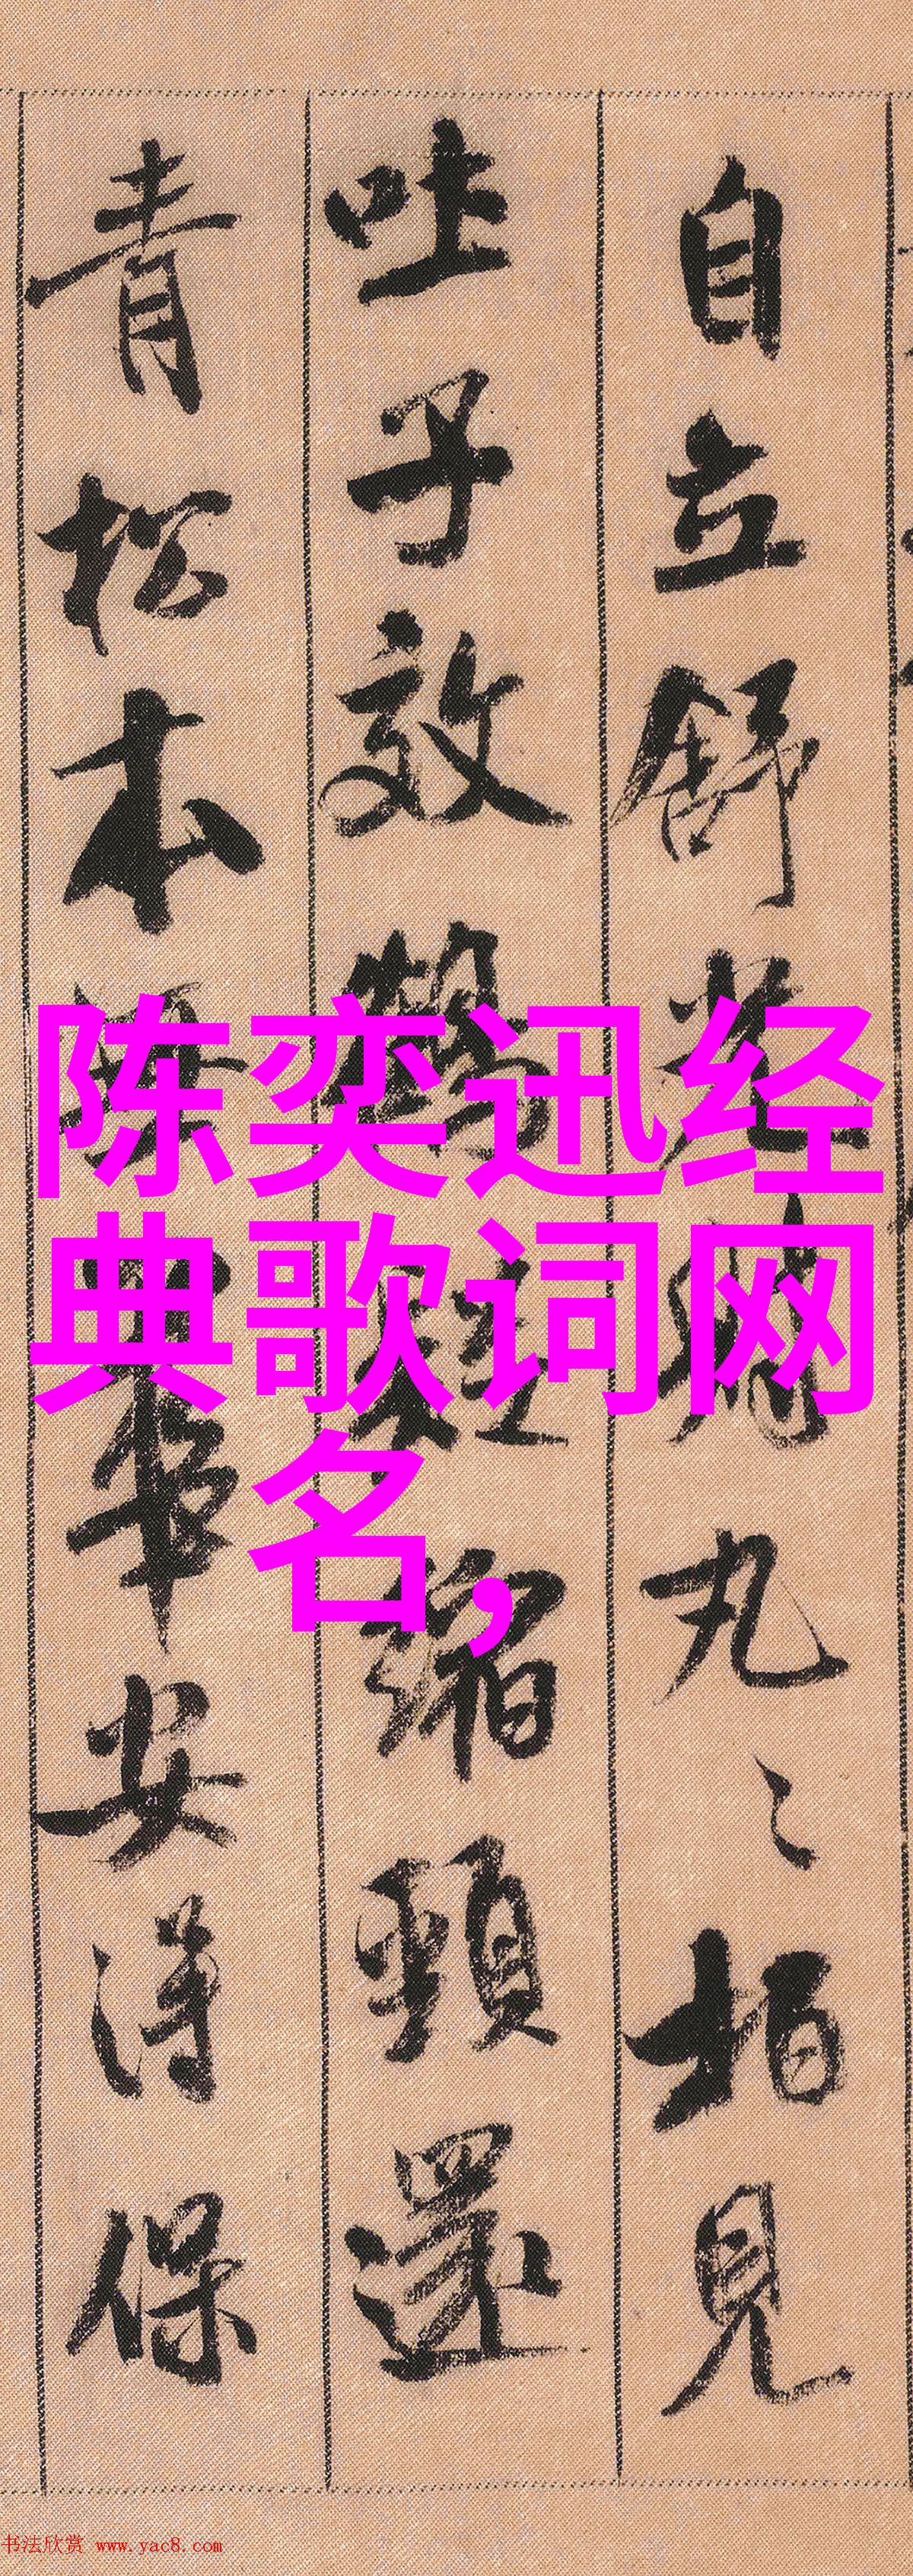 自立舒光射丸〻柏見
吐子效鶴疑縮頸還
青松本無華安得保
陈奕迅经
典歌词网
名,
书法欣赏 www.yac8.com